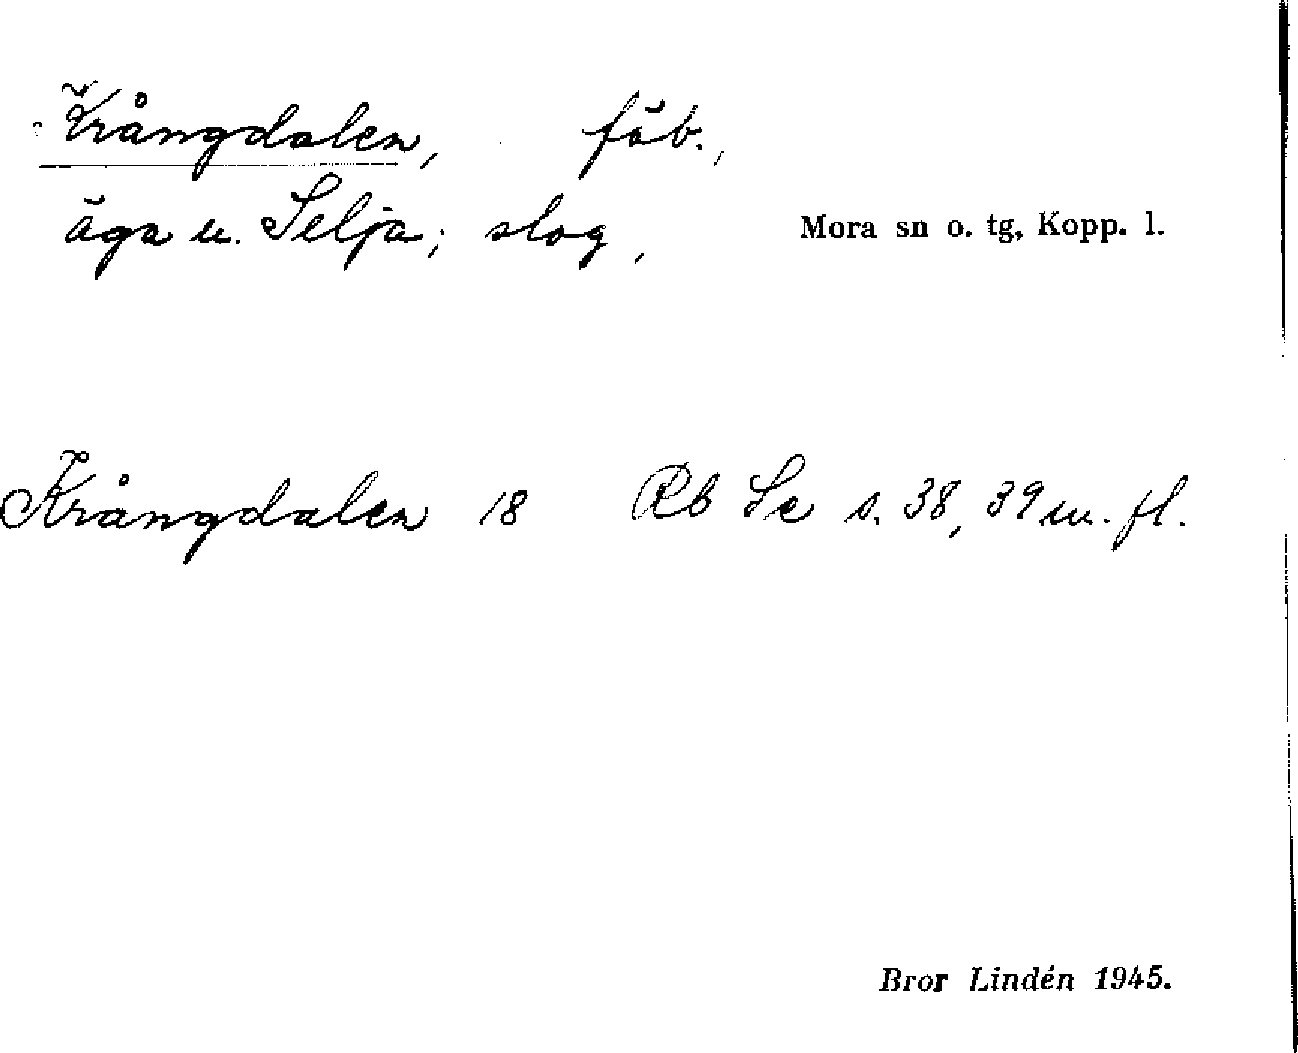 Krångdalen, fäb.,
äga u. Selja; slog,
Mora sn o. tg, Kopp. l.
Krångdalen 18 Rb Se s. 38, 39 m. fl.
Bror Lindén 1945.